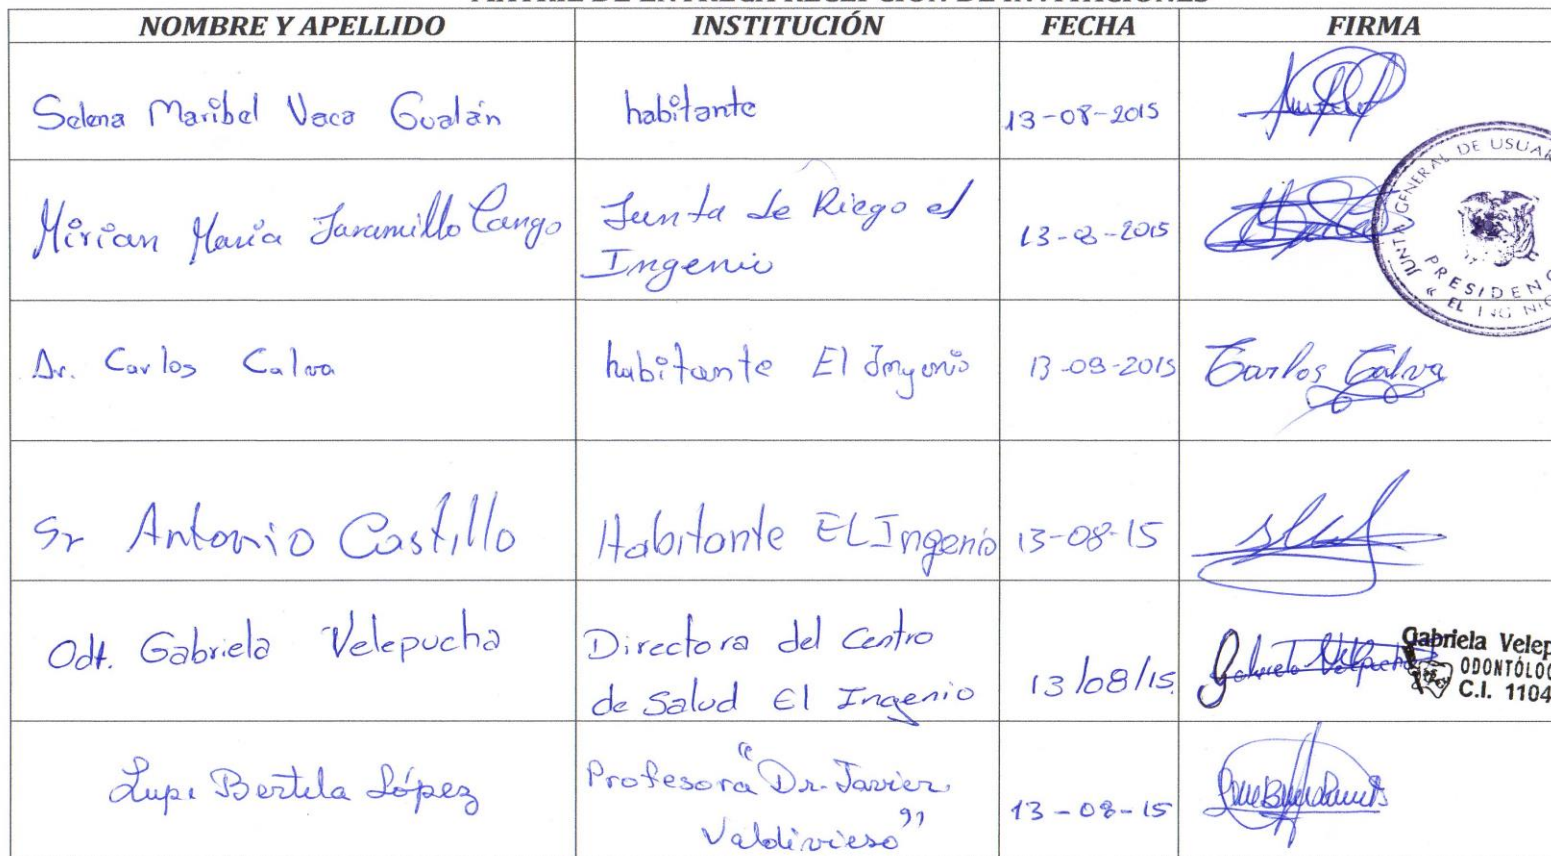 NOMBRE Y APELLIDO INSTITUCIÓN FECHA FIRMA
Selena Maribel Vaca Gualán habitante 13-08-2015
JUNTA GENERAL DE USUAR
PRESIDENC
« EL INGENIO
Mirian Maria Jaramillo Cango Junta de Riego el
Ingenio
13-8-2015
Dr. Carlos Calva habitante El Ingenio 13-08-2015 Carlos Calva
Sr Antonio Castillo Habitante EL Ingenio 13-08-15
Odt. Gabriela Velepucha Directora del Centro
de Salud El Ingenio
13/08/15 Gabriela Velepucha
Gabriela Velep
ODONTÓLOG
C.I. 1104
Bertila López Profesora "Dr. Javier
Valdivieso"
13-08-15